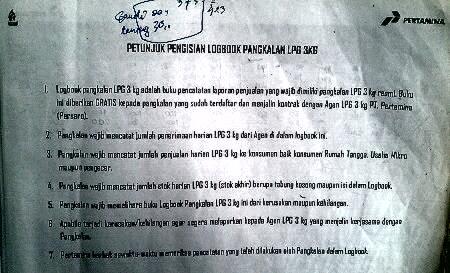 373
423
PERTAMINA
PETUNJUK PENGISIAN LOGBOOK PANGKALAN LPG 3KG
1. Logbook pangkalan LPG 3 kg adalah buku pencatatan laporan penjualan yang wajib dimiliki pangkalan LPG 3 kg resmi. Buku
ini diberikan GRATIS kepada pangkalan yang sudah terdaftar dan menjalin kontrak dengan Agen LPG 3 kg PT. Pertamina
(Persero).
2. Pangkalan wajib mencatat jumlah penerimaan harian LPG 3 kg dari Agen di dalam logbook ini.
3. Pangkalan wajib mencatat jumlah penjualan harian LPG 3 kg ke konsumen baik konsumen Rumah Tangga, Usaha Mikro
maupun pengecer.
4. Pangkalan wajib mencatat jumlah stok harian LPG 3 kg (stok akhir) berupa tabung kosong maupun isi dalam Logbook.
5. Pangkalan wajib memelihara buku Logbook Pangkalan LPG 3 kg ini dari kerusakan maupun kehilangan.
6. Apabila terjadi kerusakan/kehilangan agar segera melaporkan kepada Agen LPG 3 kg yang menjalin kerjasama dengan
Pangkalan.
7. Pertamina berhak sewaktu-waktu memeriksa pencatatan yang telah dilakukan oleh Pangkalan dalam Logbook.